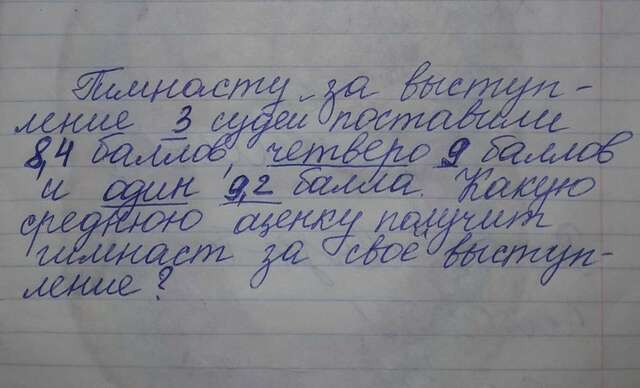 Гимнасту за выступ-
ление 3 судьи поставили
8,4 баллов, четверо 9 баллов
и один 9,2 балла. Какую
среднюю оценку получит
гимнаст за своё выступ-
ление?